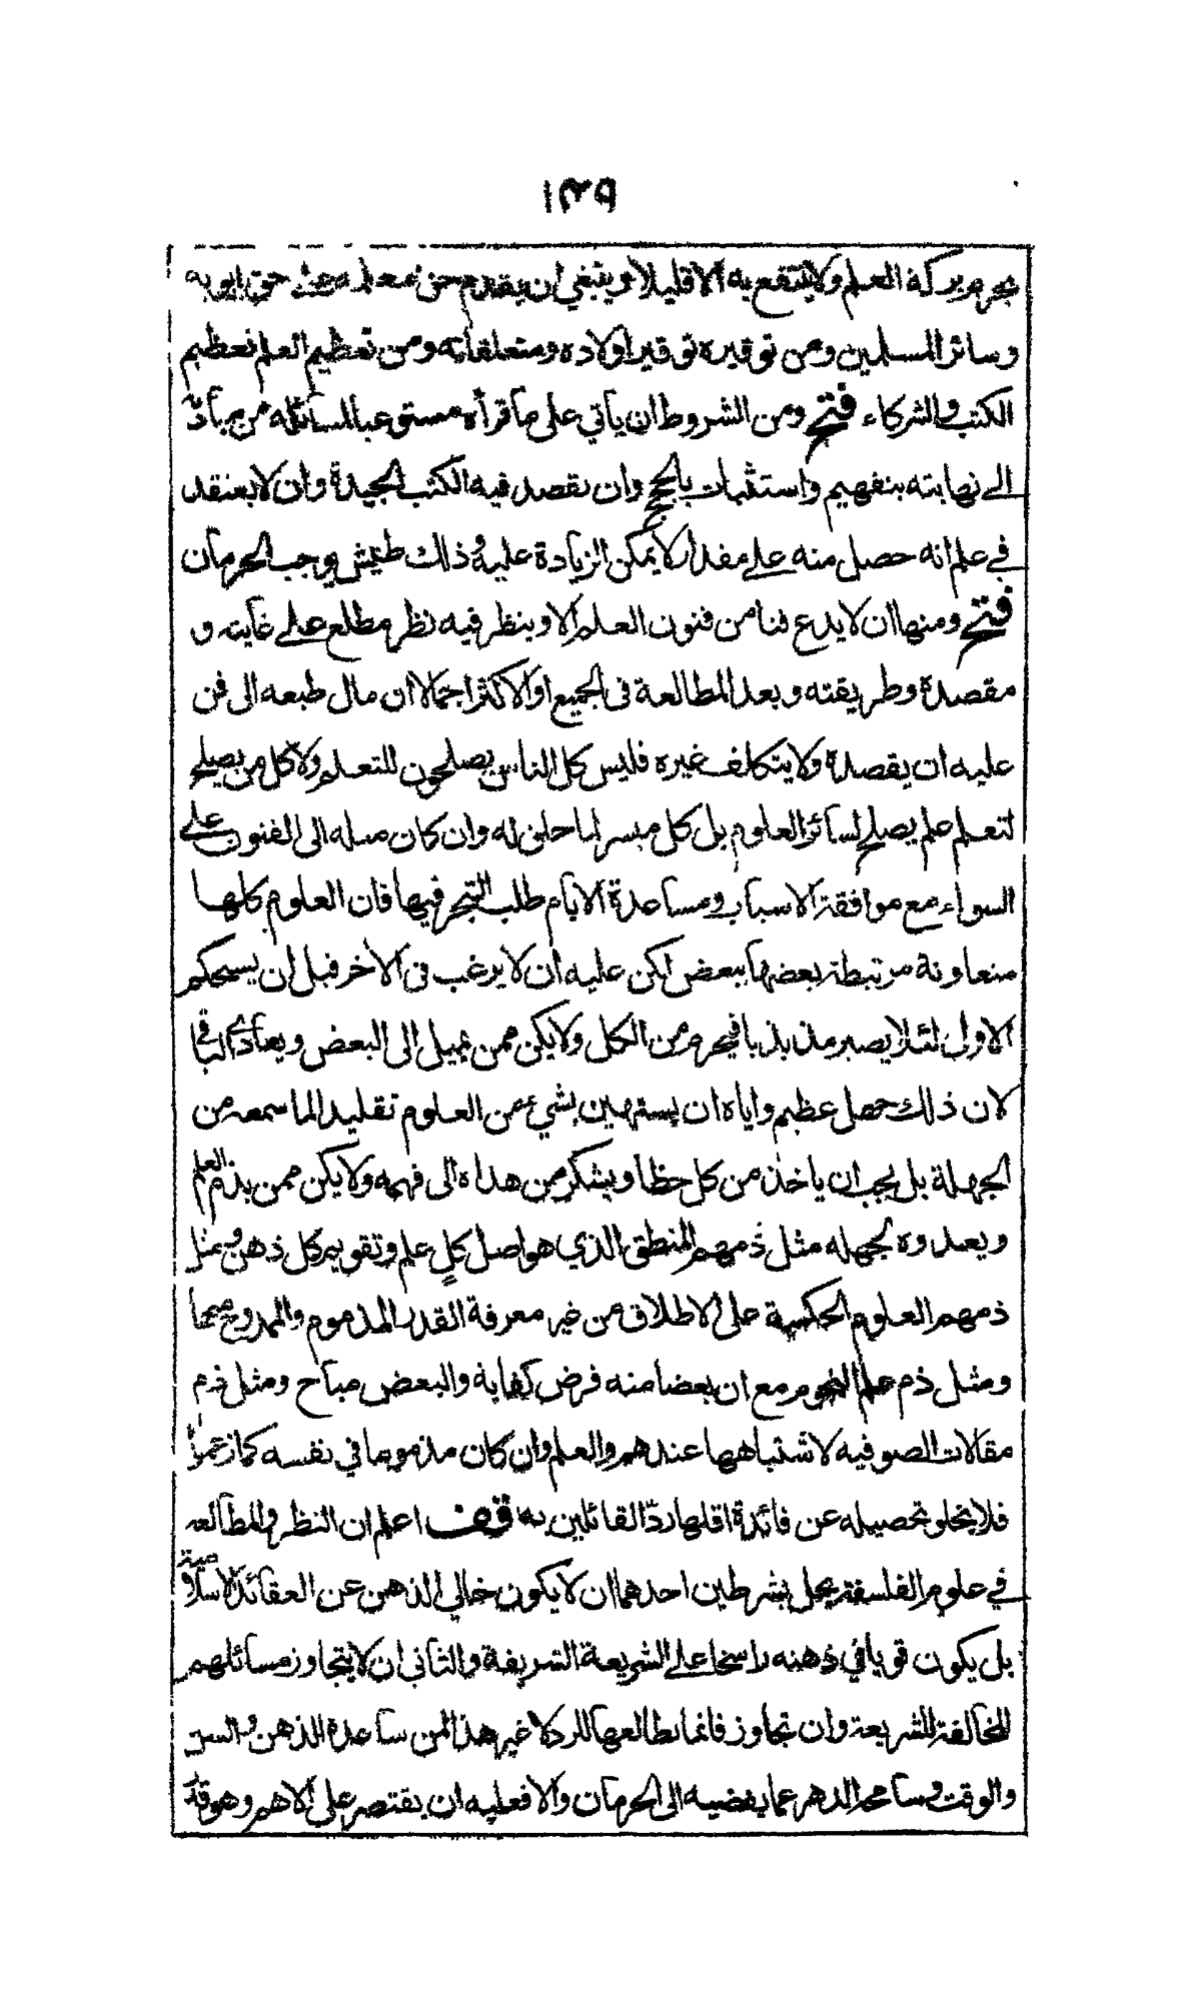 ١٣٥
يحرم بركة العلم ولا ينتفع به الا قليلا وينبغي ان يقدم حق معلمه على حق ابويه
وسائر المسلمين ومن توقيره توقير اولاده ومتعلقاته ومن تعظيم العلم تعظيم
الكتب والشركاء فتح ومن الشروط ان يأتي على ما قرأه مستوعبا لمسائله من مبادئه
الى نهايته بتفهيم واستثبات بالحجج وان يقصد فيه الكتب الجيدة وان لا يعتقد
في علم انه حصل منه على مقدار لا يمكن الزيادة عليه وذلك طيش يوجب الحرمان
فتح ومنها ان لا يدع فنا من فنون العلم الا وينظر فيه نظر مطلع على غايته و
مقصده وطريقته وبعد المطالعة في الجميع او الاكثر اجمالا ان مال طبعه الى فن
عليه ان يقصده ولا يتكلف غيره فليس كل الناس يصلحون للتعلم ولا كل من يصلح
لتعلم علم يصلح لسائر العلوم بل كل ميسر لما خلق له وان كان ميله الى الفنون على
السواء مع موافقة الاسباب ومساعدة الايام طلب التبحر فيها فان العلوم كلها
متعاونة مرتبطة بعضها ببعض لكن عليه ان لا يرغب في الآخر قبل ان يستحكم
الاول لئلا يصير مذبذبا فيحرم من الكل ولا يكن ممن يميل الى البعض ويعادي الباقي
لان ذلك جهل عظيم واياه ان يستهين بشيء من العلوم تقليدا لما سمعه من
الجهلة بل يجب ان ياخذ من كل حظا ويشكر من هداه الى فهمه ولا يكن ممن يذم العلم
ويعدوه لجهله مثل ذمهم المنطق الذي هو اصل كل علم وتقويم كل ذهن ومثل
ذمهم العلوم الحكمية على الاطلاق من غير معرفة القدر المذموم والممدوح منها
ومثل ذم علم النجوم مع ان بعضا منه فرض كفاية والبعض مباح ومثل ذم
مقالات الصوفيه لاشتباهها عندهم والعلم وان كان مذموما في نفسه كما زعموا
فلا يخلو تحصيله عن فائدة اقلها ردّ القائلين به قف اعلم ان النظر والمطالعه
في علوم الفلسفة يحل بشرطين احدهما ان لا يكون خالي الذهن عن العقائد الاسلامية
بل يكون قويا في ذهنه راسخا على الشريعة الشريفة والثاني ان لا يتجاوز مسائلهم
المخالفة للشريعة وان تجاوز فانما يطالعها للرد لا غير هذا لمن ساعده الذهن والسن
والوقت وسامحه الدهر عما يفضيه الى الحرمان والا فعليه ان يقتصر على الاهم وهو قدر